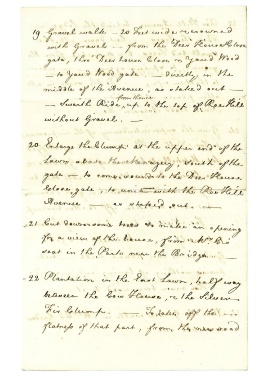 19 Gravel walk - 20 feet wide & crowned
with Gravel - from the Deer House Close
gate, thro' Deer house Close & Wood
- to Wood gate - directly in the
middle of the Avenue, as staked out -
from thence
- Swarth Ride, up to the top of Roe Hill
without Gravel. -
20 Enlarge the Clump at the upper end of the
Lawn above the Menagery, South of the
gate - to come round to the Deer House
Close, gate, to unite with the Roe Hill
Avenue - as staked out. -
21 Cut down some trees to make an opening
for a view of the house, from Mr B's
seat in the Park near the Bridge. -
22 Plantation in the East Lawn, half way
between the Cow House, & the Silver
Fir Clump. - To take off the
flatness of that part, from the new road